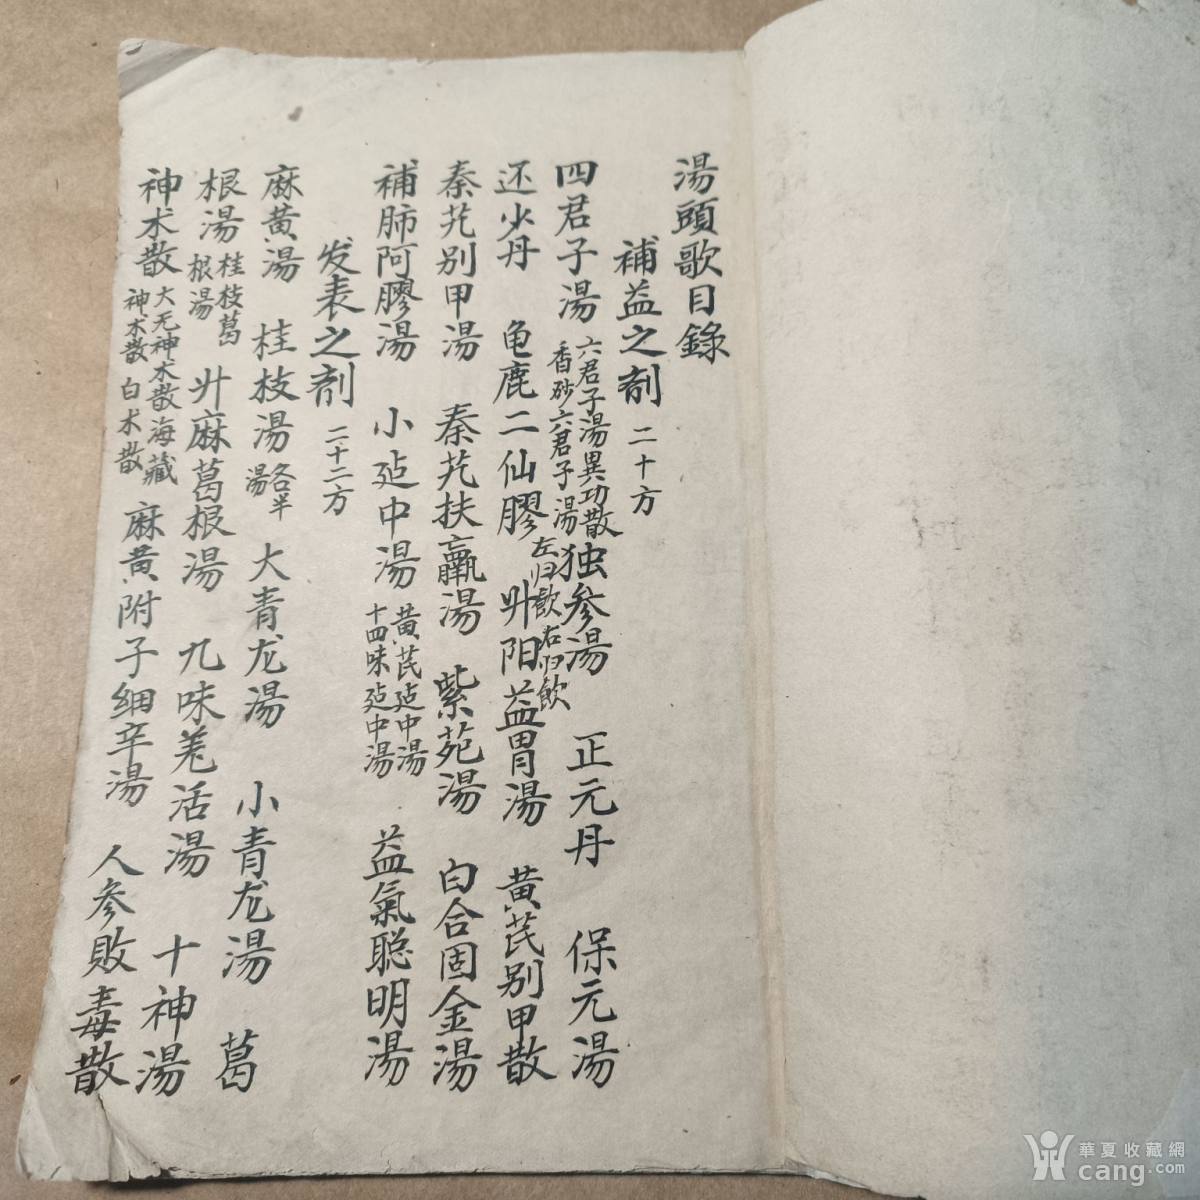 湯頭歌目錄
補益之剤 二十方
四君子湯 六君子湯異功散
香砂六君子湯 独参湯 正元丹 保元湯
还少丹 龟鹿二仙膠 左归飲右归飲 升阳益胃湯 黄芪别甲散
秦艽别甲湯 秦艽扶羸湯 紫苑湯 白合固金湯
補肺阿膠湯 小建中湯 黄芪建中湯
十四味建中湯 益氣聪明湯
发表之剤 二十二方
麻黄湯 桂枝湯 各半
湯 大青龙湯 小青龙湯 葛
根湯 桂枝葛
根湯 升麻葛根湯 九味羌活湯 十神湯
神术散 太无神术散海藏
神术散 白术散 麻黄附子细辛湯 人参敗毒散
華夏收藏網
cang.com